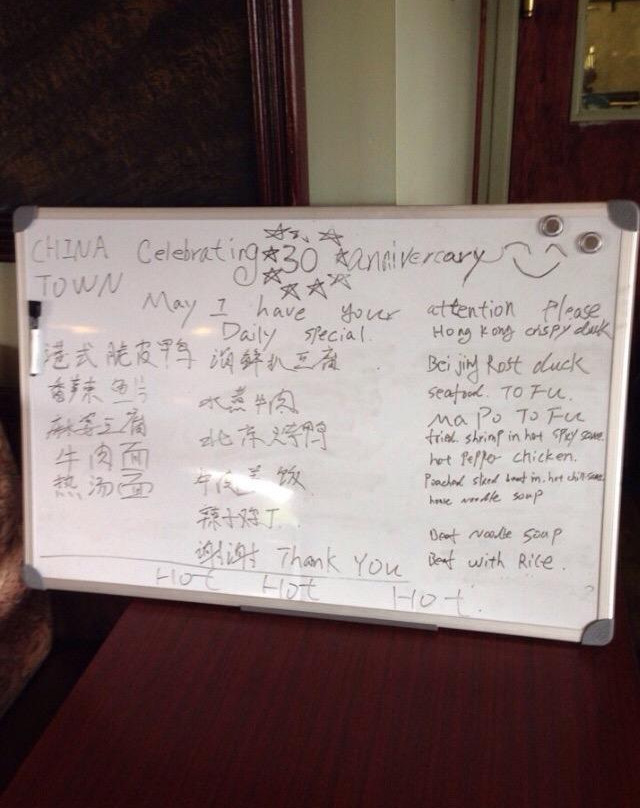 CHINA TOWN
Celebrating 30 anniversary
May I have your attention Please
Daily special.
港式脆皮鸭
香辣鱼片
麻婆豆腐
牛肉面
热汤面
海鲜扒豆腐
水煮牛肉
北京烤鸭
牛肉盖饭
辣子鸡丁
谢谢 Thank You
Hong Kong crispy duck
Beijing Rost duck
seafood. TO Fu.
Ma Po TO Fu
fried shrimp in hot spicy
hot Pepper chicken.
Poached in hot chili
noodle soup
Beef noodle soup
Beef with Rice.
Hot Hot Hot.